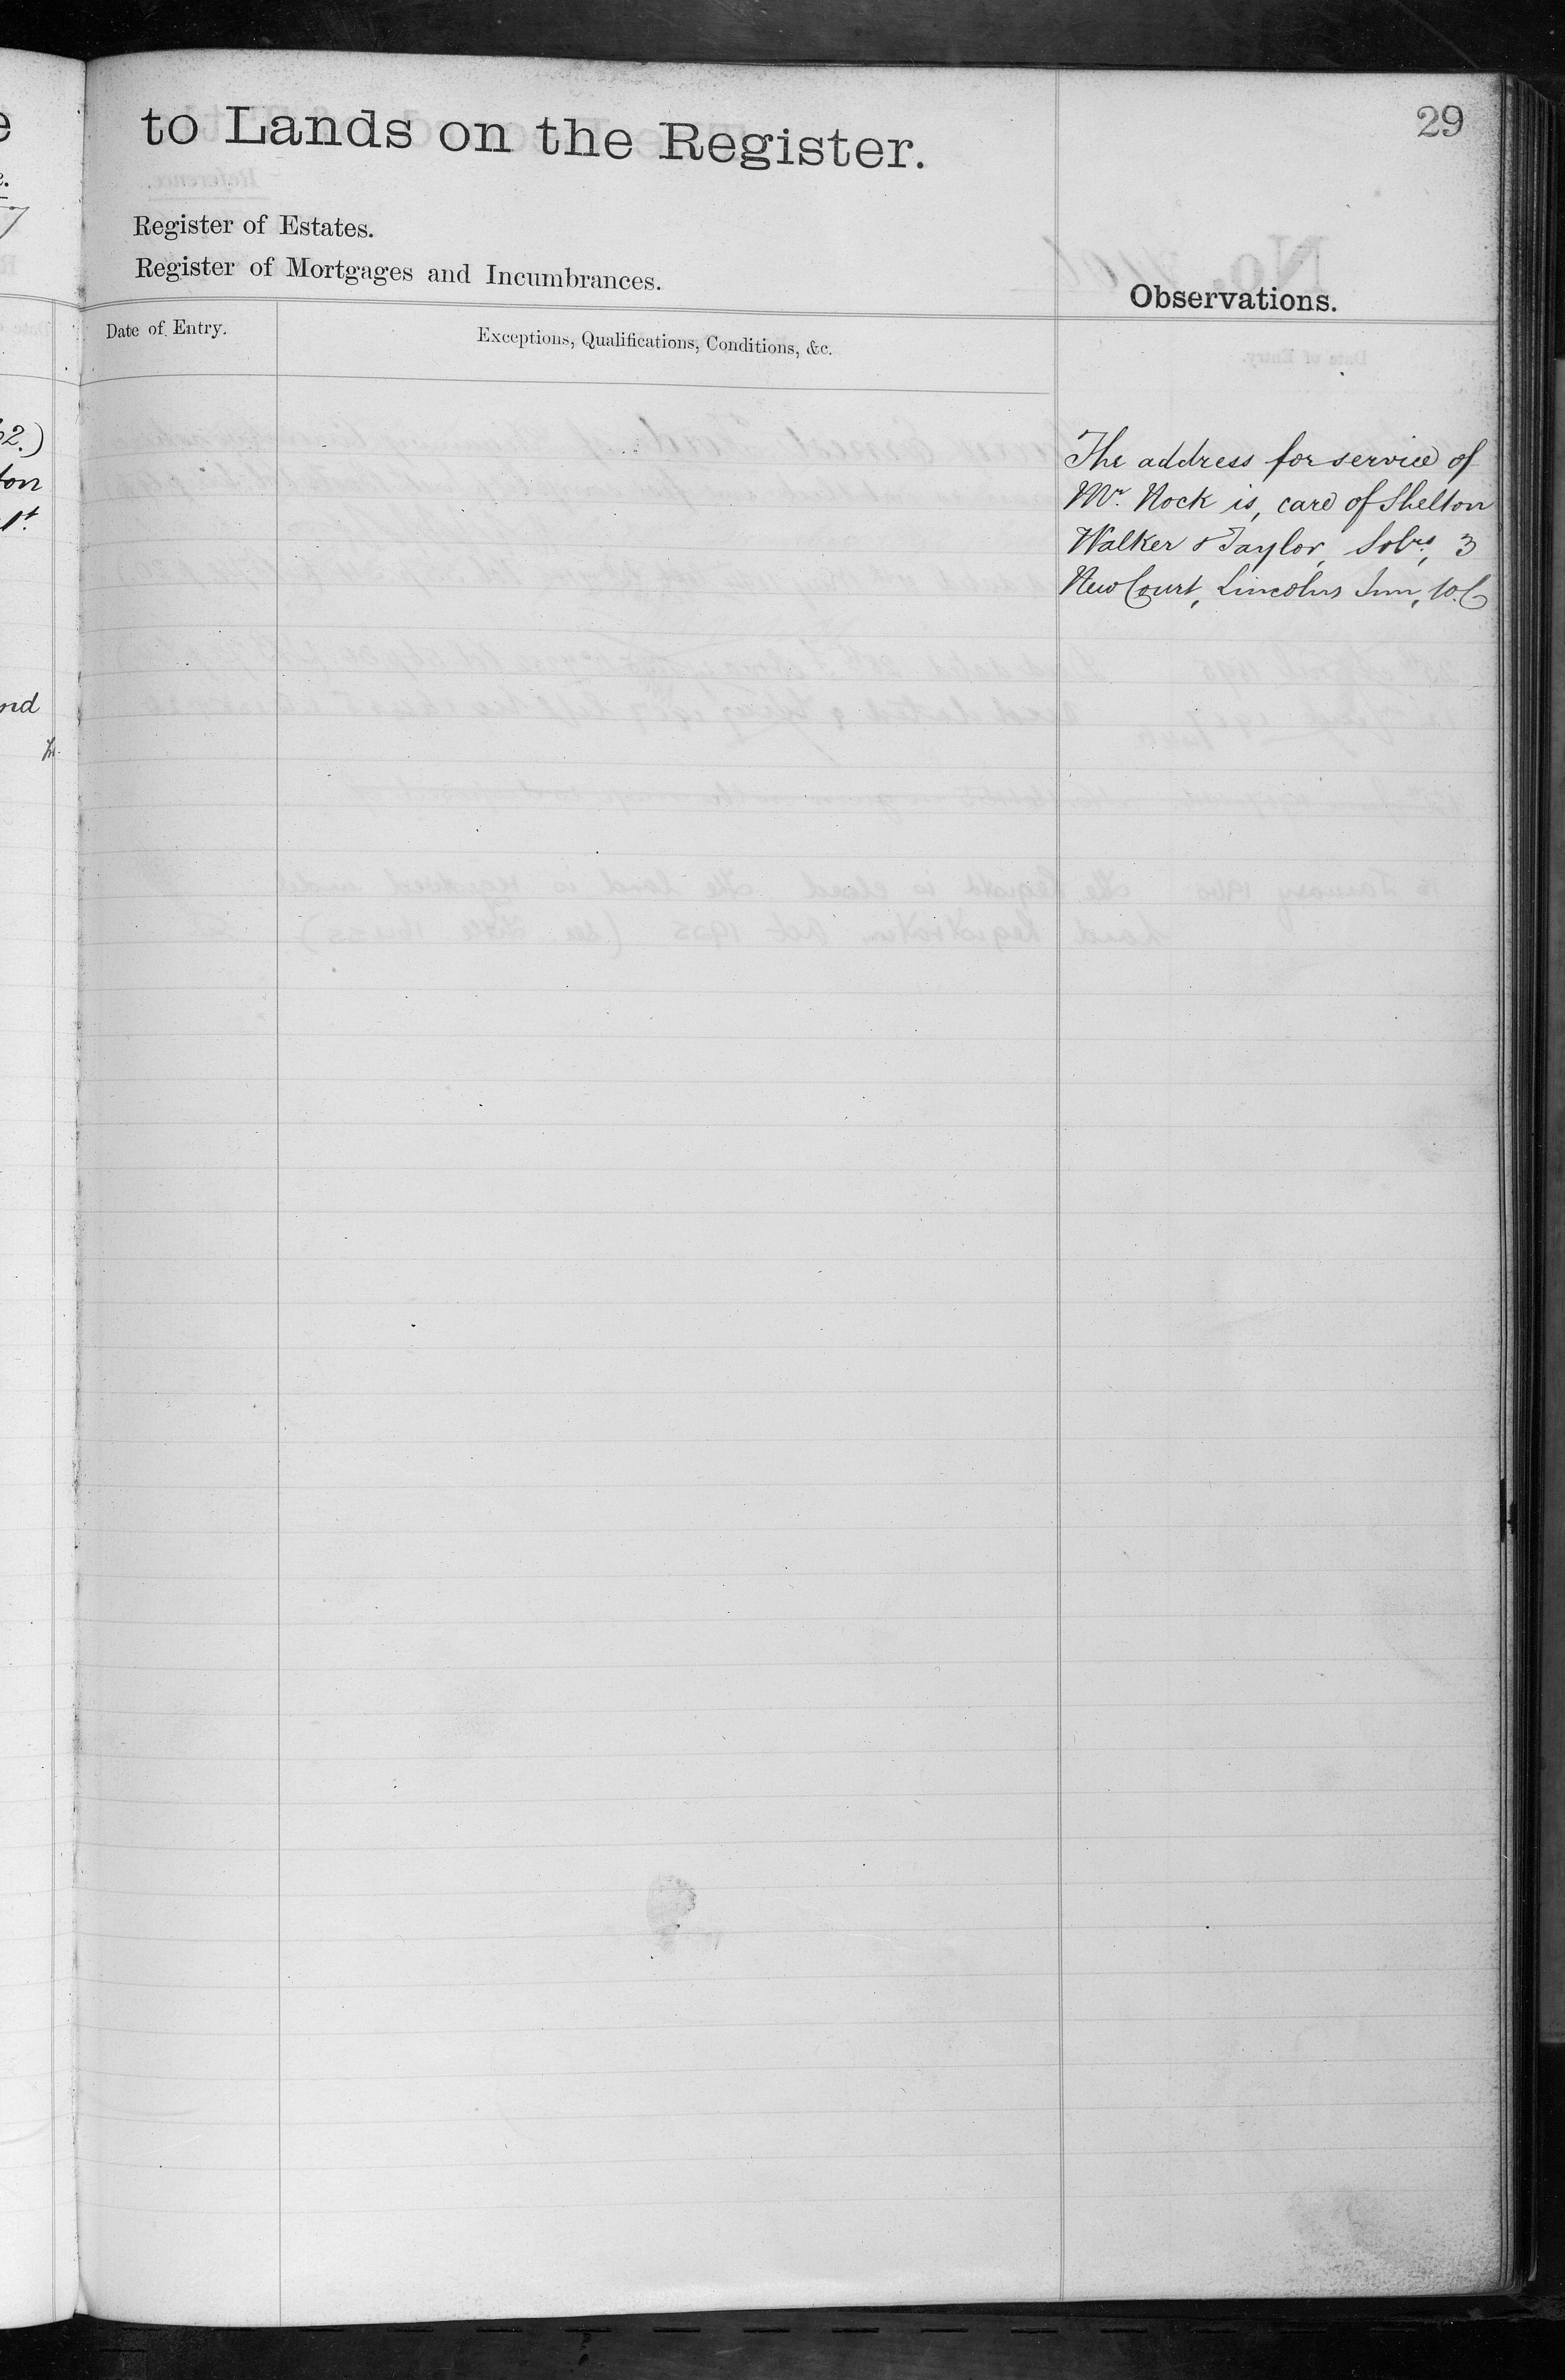 to Lands on the Register.
29
Register of Estates.
Register of Mortgages and Incumbrances.
Observations.
Date of Entry.
Exceptions, Qualifications, Conditions, &c.
The address for service of
Mr. Nock is, care of Shelton
Walker & Taylor, Solrs, 3
New Court, Lincolns Inn, W.C